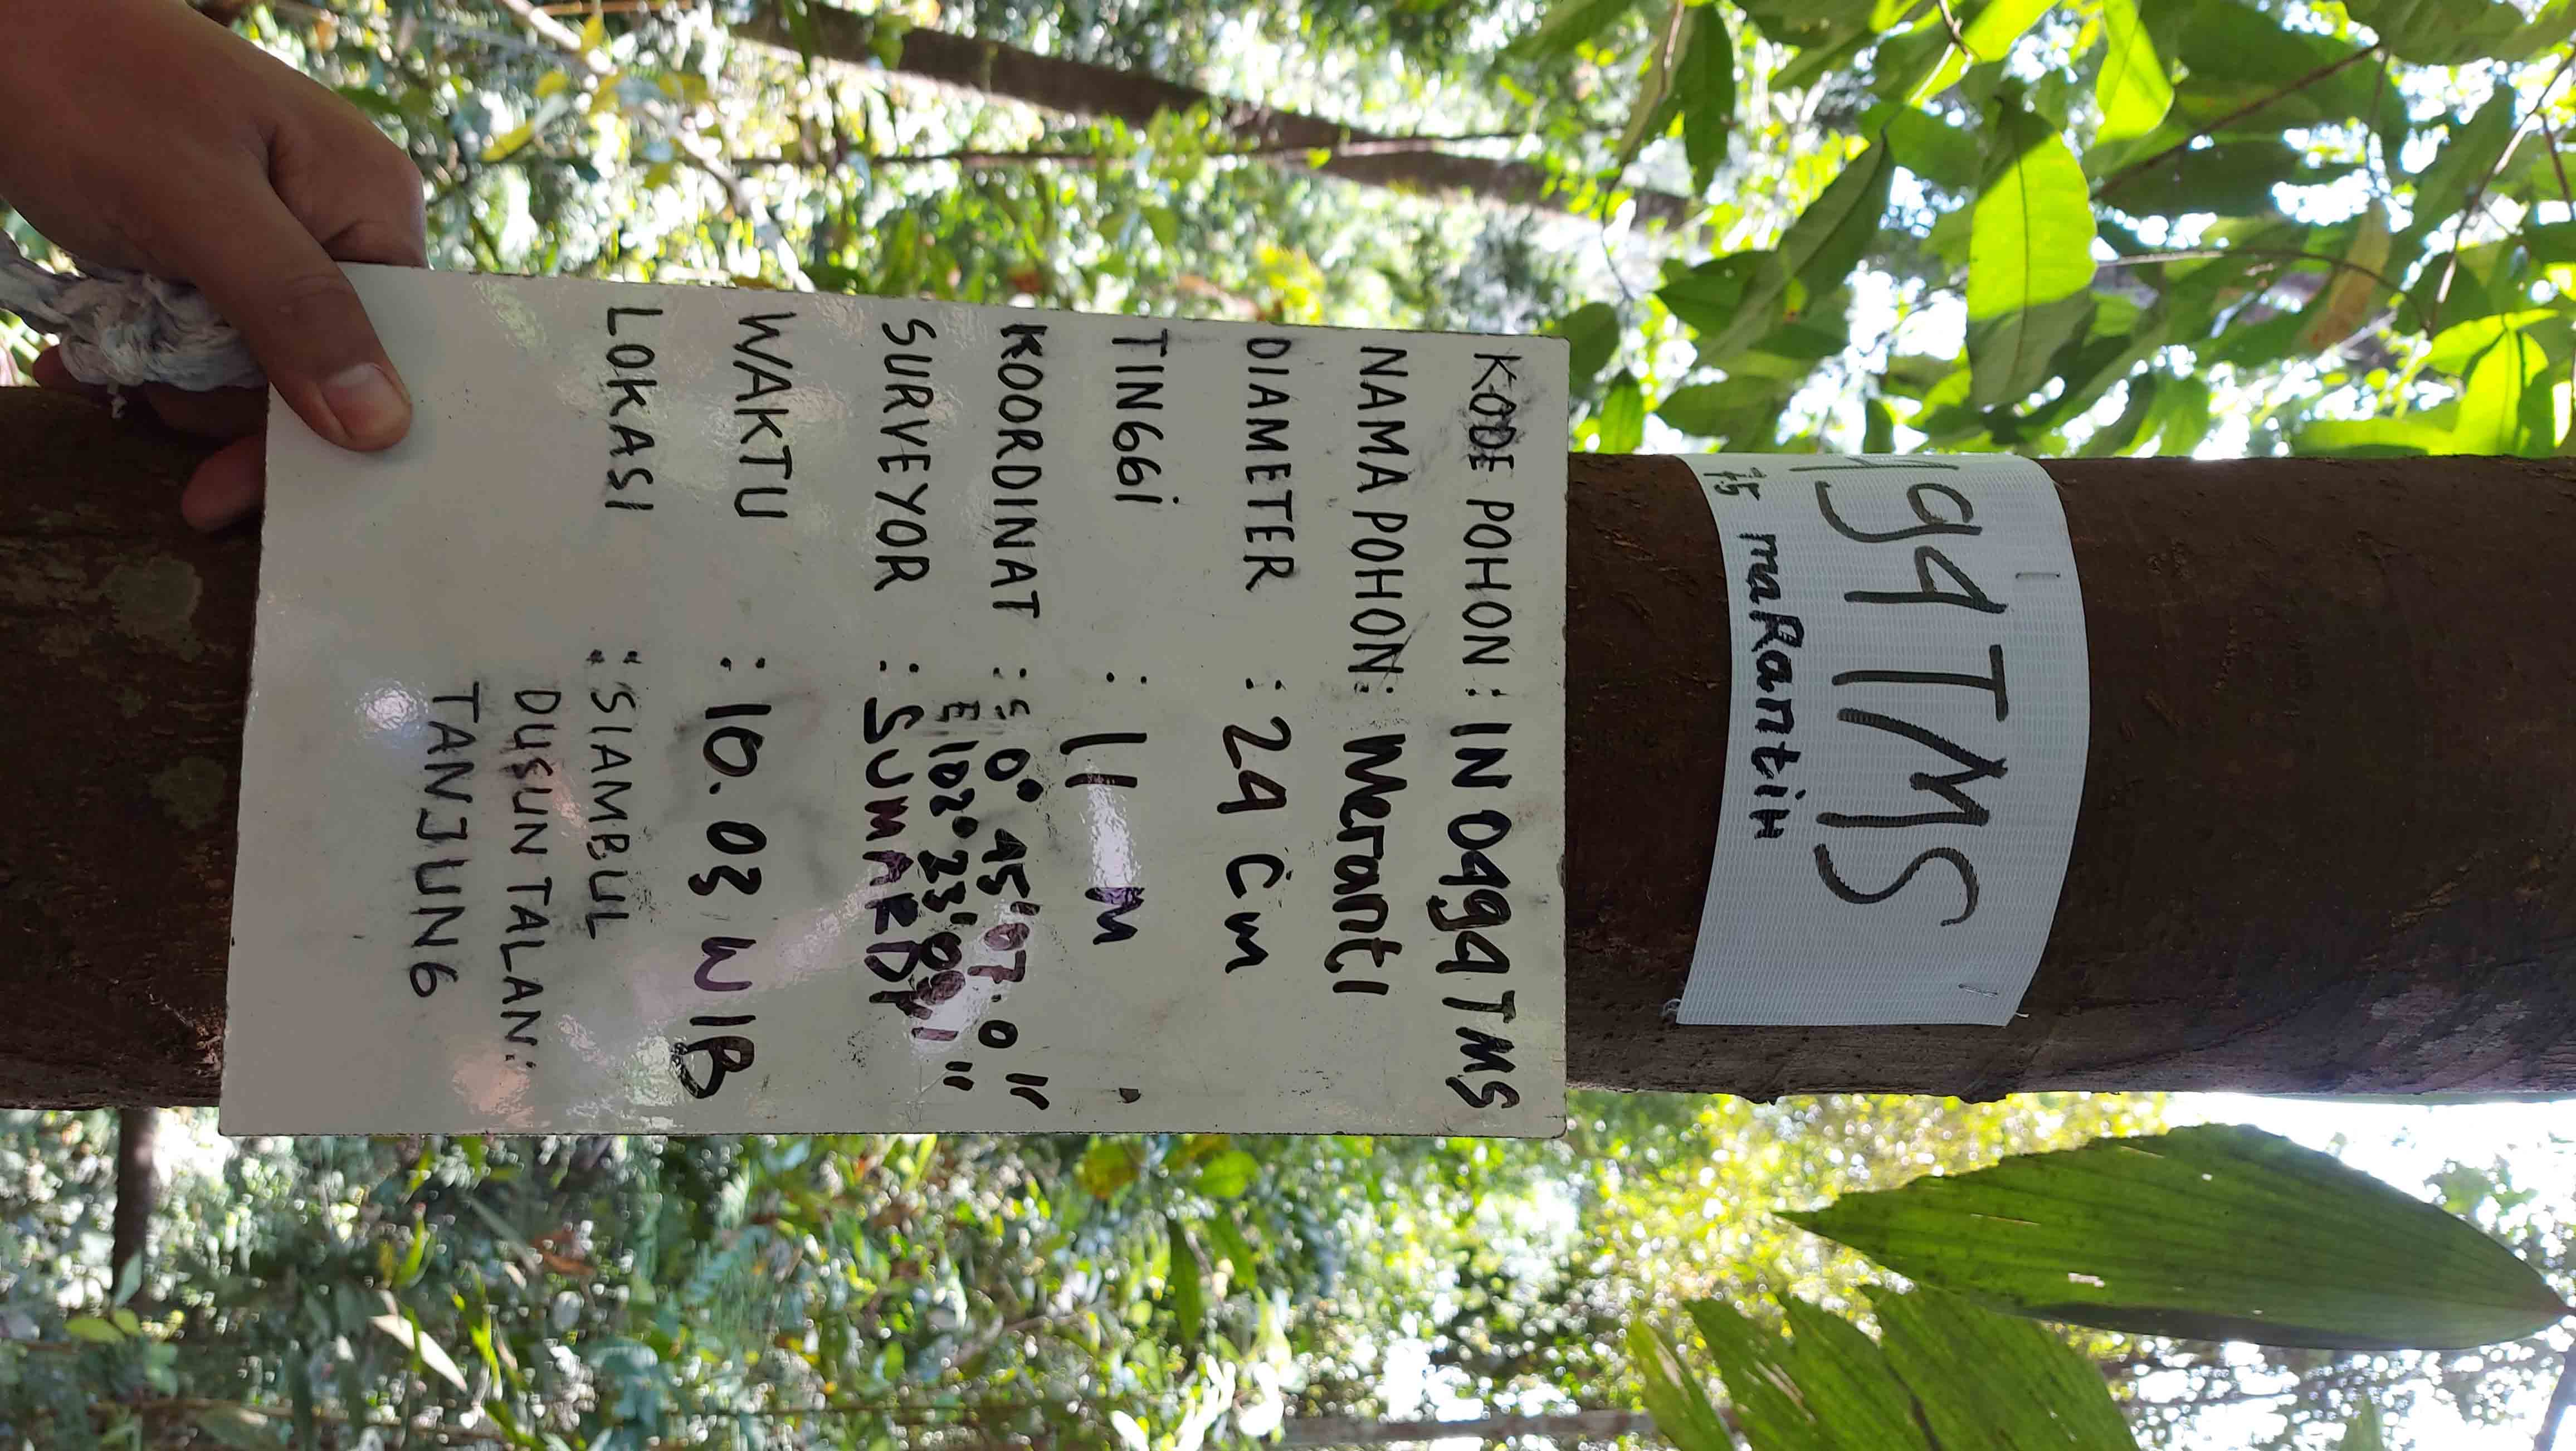 494TMS
75 maRantiH
KODE POHON : IN 0494TMS
NAMA POHON: Meranti
DIAMETER : 24 Cm
TINGGI : 11 M
KOORDINAT : S 0° 45'07.0"
E 102° 23'09.1"
SURVEYOR : SUMARDI
WAKTU : 10.03 WIB
LOKASI : SIAMBUL
DUSUN TALAN:
TANJUNG